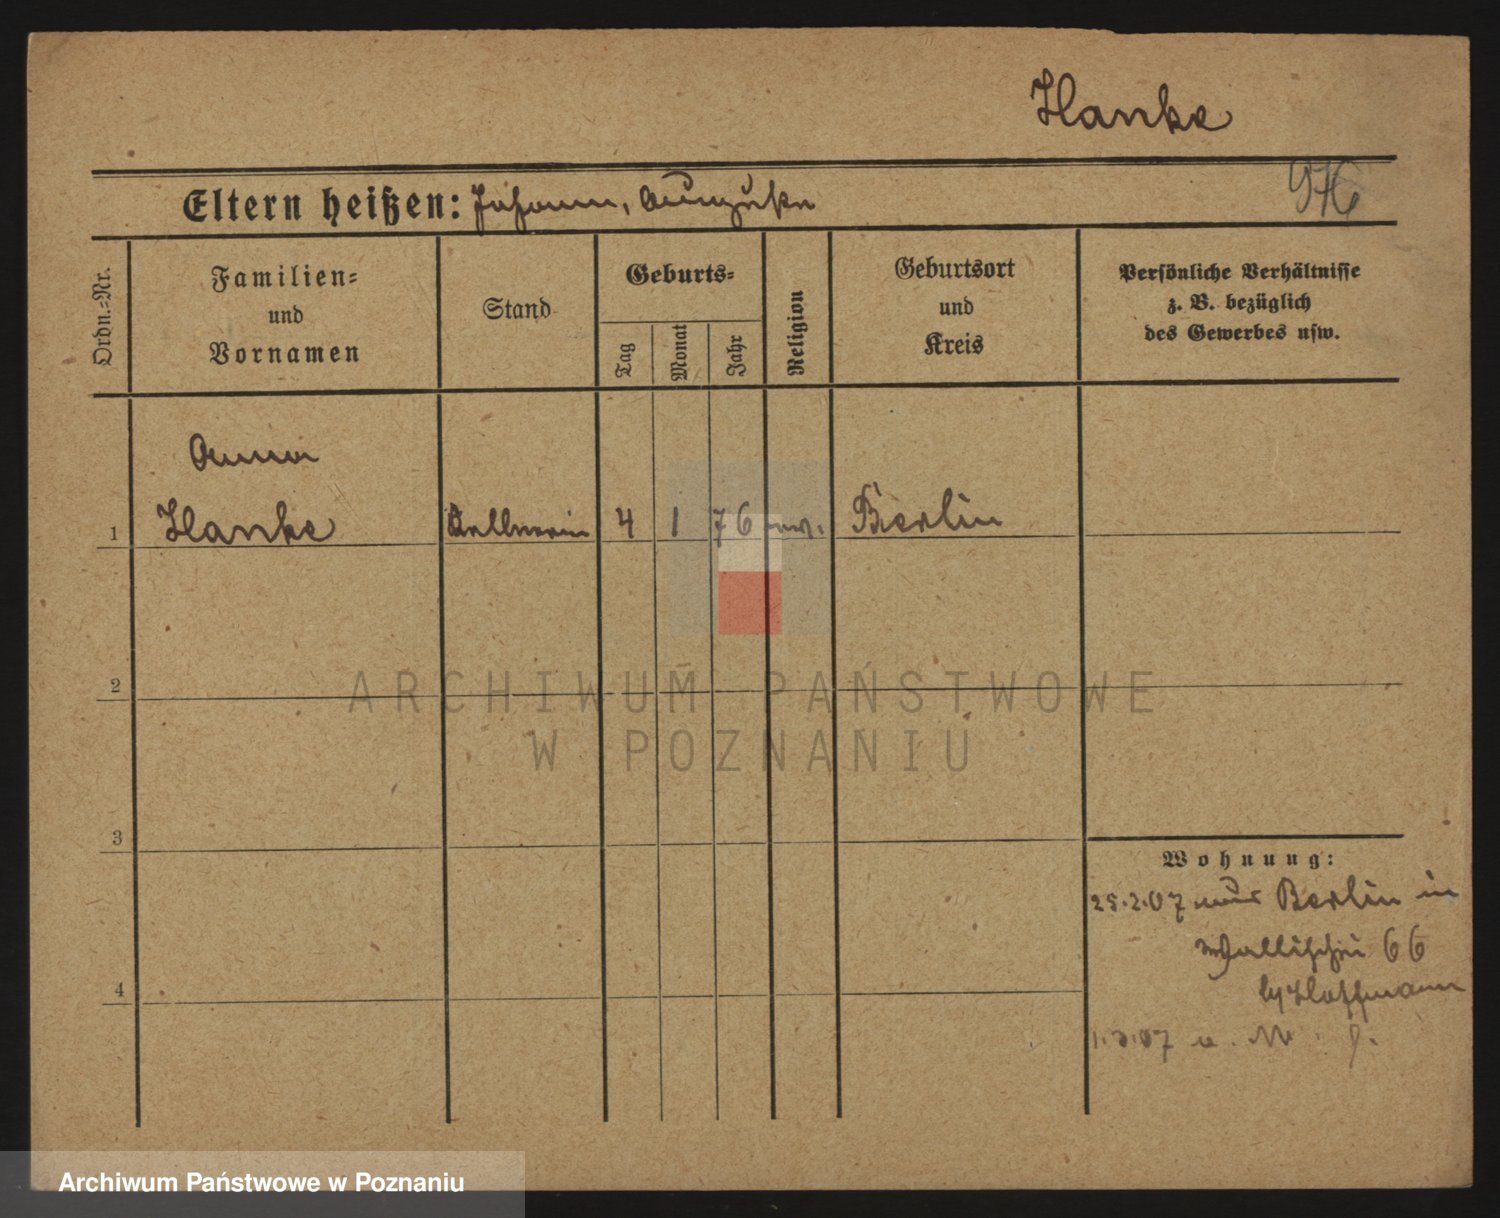 Hanke
Eltern heißen: Johann, Auguste
976
Ordn.-Nr.
Familien-
und
Vornamen
Stand
Geburts-
Tag
Monat
Jahr
Religion
Geburtsort
und
Kreis
Persönliche Verhältnisse
z. B. bezüglich
des Gewerbes usw.
Anna
1 Hanke Kellnerin 4 1 76 ev. Berlin
2
3
4
Wohnung:
25.2.07 aus Berlin in
Wallischei 66
b/Hoffmann
07
ARCHIWUM PAŃSTWOWE
W POZNANIU
Archiwum Państwowe w Poznaniu